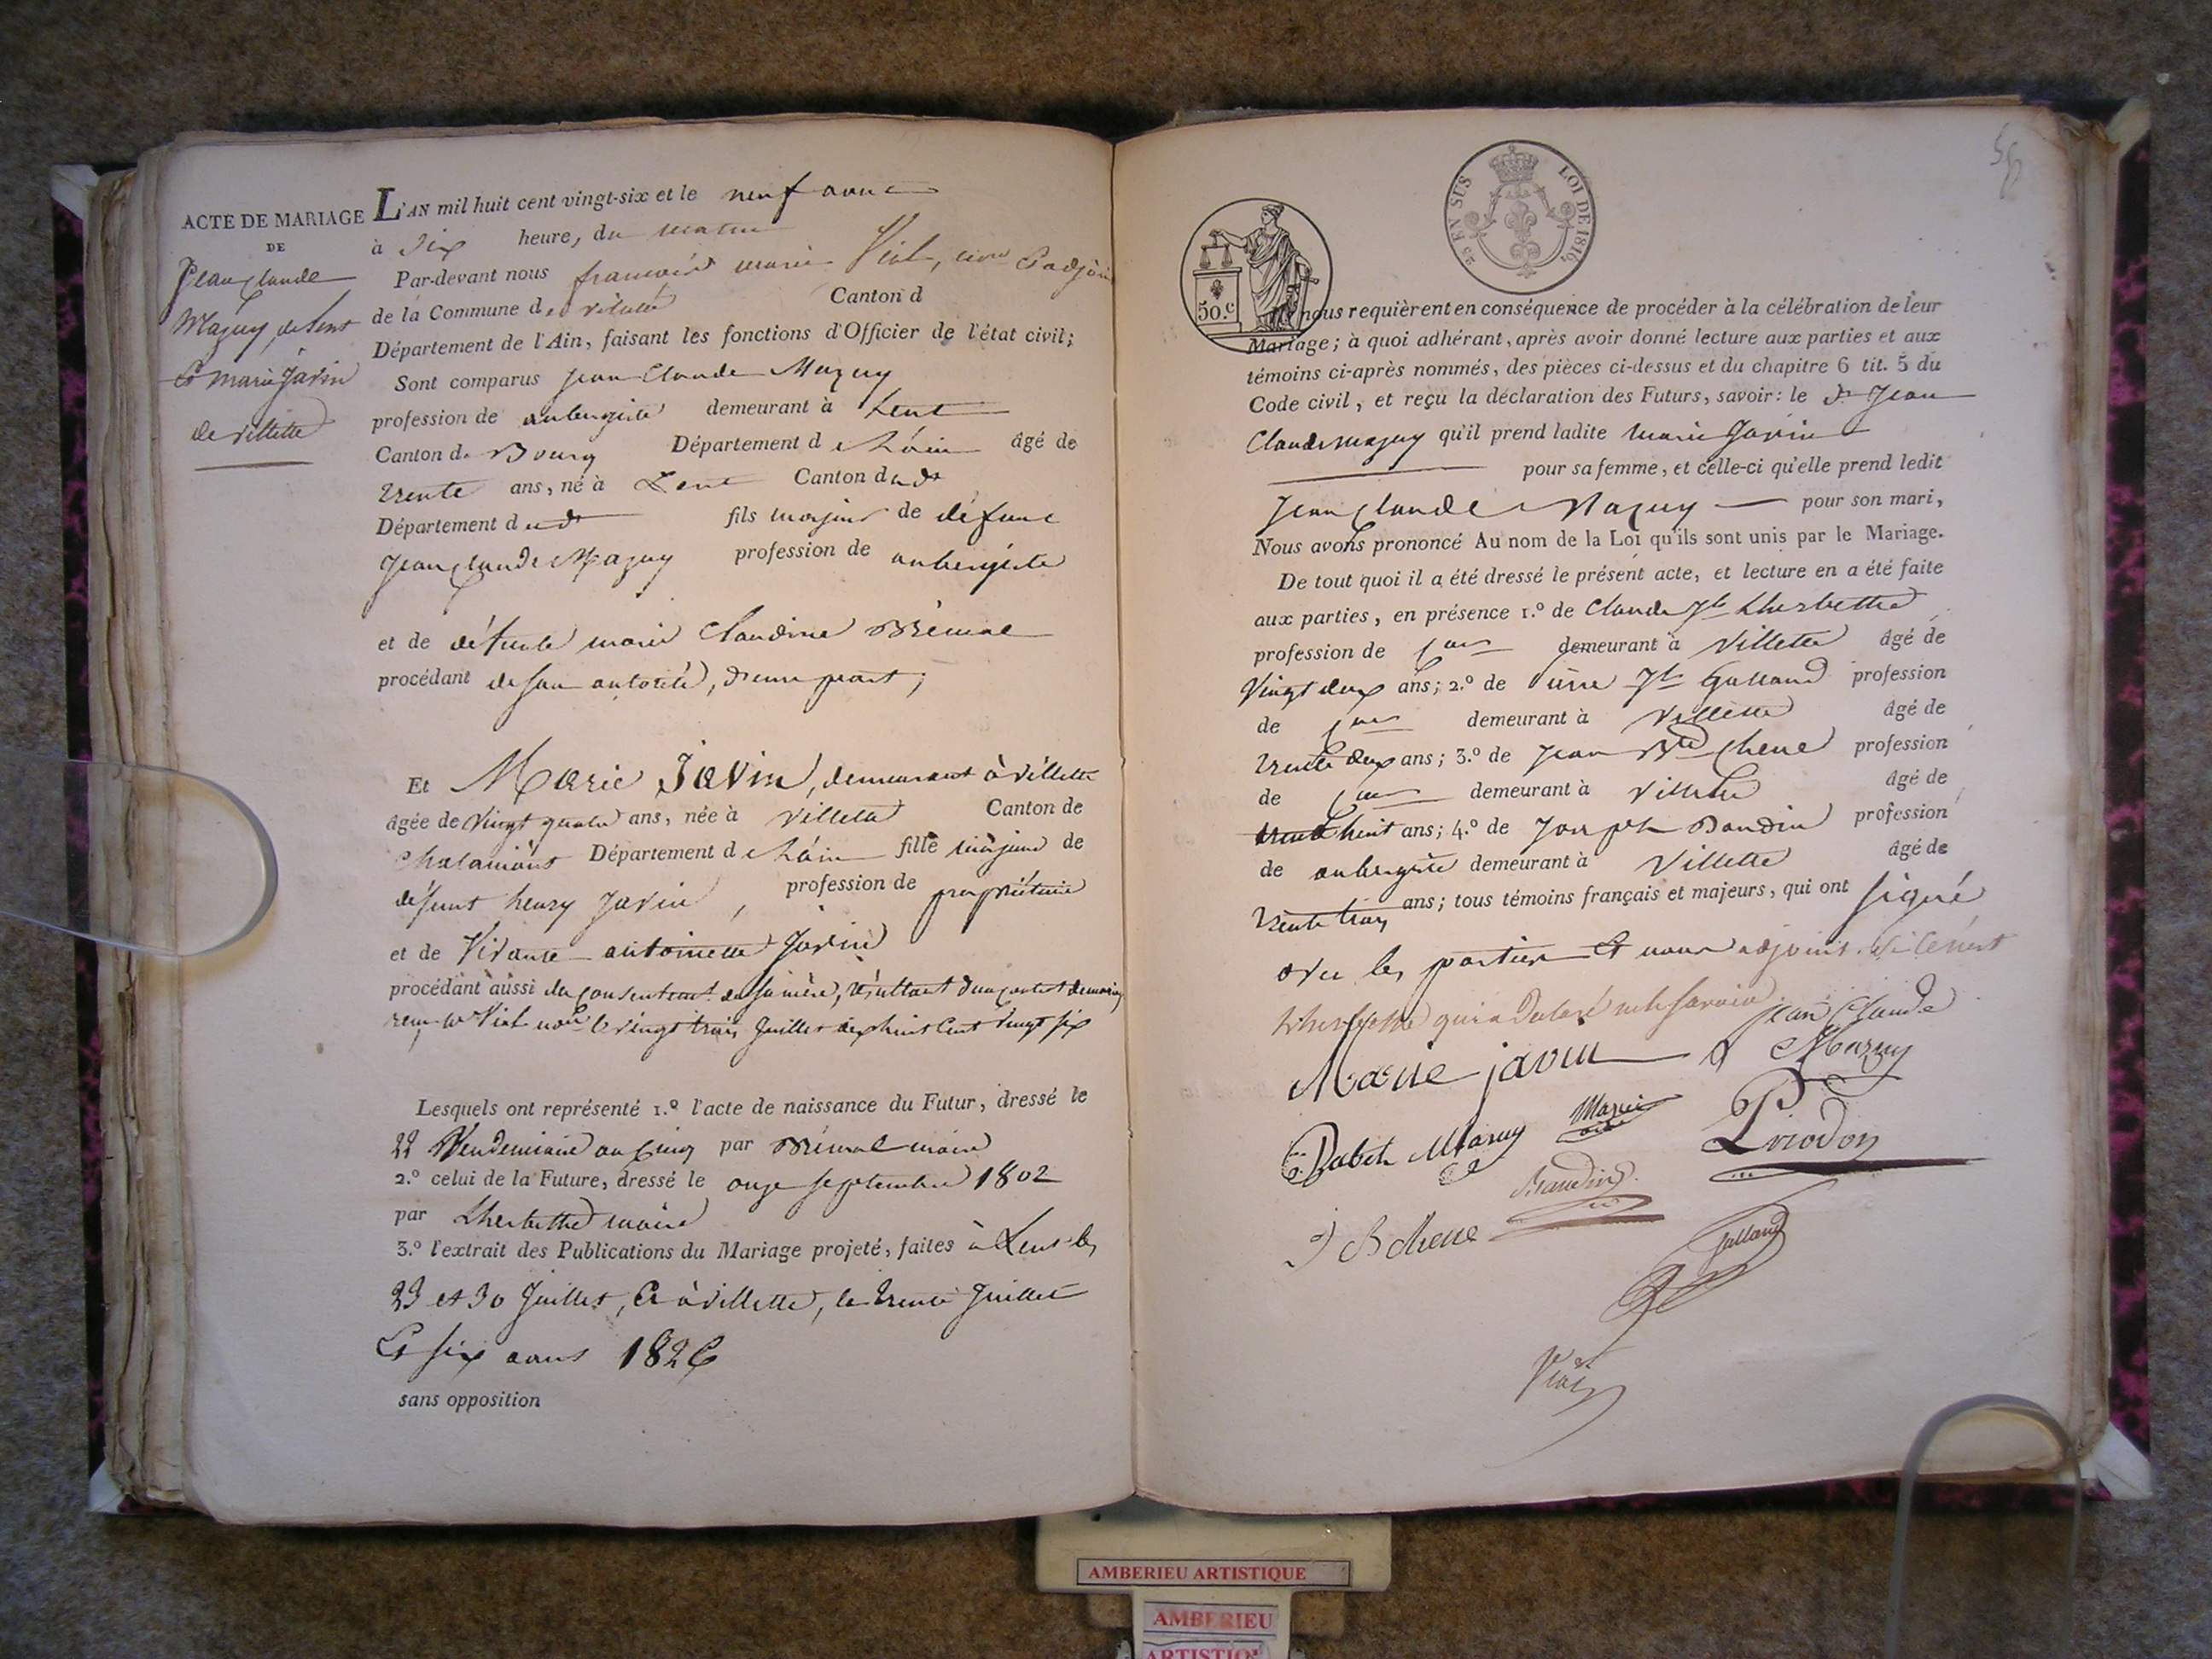 ACTE DE MARIAGE
DE
Jean Claude
Mazuy, de Lent
Et Marie Javin
de villette
L'AN mil huit cent vingt-six et le neuf aout
à dix heure, du matin
Par-devant nous françois marie Vial, Et adjoint
de la Commune de villette Canton d
Département de l'Ain, faisant les fonctions d'Officier de l'état civil;
Sont comparus Jean Claude Mazuy
profession de aubergiste demeurant à Lent
Canton de Bourg Département de L'ain âgé de
trente ans, né à Lent Canton dudt
Département dudt fils majeur de défunt
Jean Claude Mazuy profession de aubergiste
et de défunte marie Claudine Brémal
procédant de son autorité, d'une part;
Et Marie Javin, demeurant à villette
âgée de vingt quatre ans, née à villette Canton de
Chalamont Département de L'ain fille majeure de
défunt henry Javin, profession de propriétaire
et de Vivante antoinette Javin
procédant aussi du consentemt de sa mère, résultant d'un contrat de mariage
reçu Me Vial nore le vingt trois Juillet dix huit Cent vingt six
Lesquels ont représenté 1.º l'acte de naissance du Futur, dressé le
22 Vendemiaire an Cinq par Brémal maire
2.º celui de la Future, dressé le onze septembre 1802
par Lherbette maire
3.º l'extrait des Publications du Mariage projeté, faites à Lent les
23 et 30 Juillet, Et à villette, le trente Juillet
Et six aout 1826
sans opposition
50.c
25 EN SUS LOI DE 1816
nous requièrent en conséquence de procéder à la célébration de leur
Mariage; à quoi adhérant, après avoir donné lecture aux parties et aux
témoins ci-après nommés, des pièces ci-dessus et du chapitre 6 tit. 5 du
Code civil, et reçu la déclaration des Futurs, savoir: le dt Jean
Claude mazuy qu'il prend ladite Marie Javin
pour sa femme, et celle-ci qu'elle prend ledit
Jean Claude Mazuy pour son mari,
Nous avons prononcé Au nom de la Loi qu'ils sont unis par le Mariage.
De tout quoi il a été dressé le présent acte, et lecture en a été faite
aux parties, en présence 1.º de Claude Lherbette
profession de demeurant à Villette âgé de
Vingt deux ans; 2.º de Galland profession
de demeurant à Villette âgé de
trente deux ans; 3.º de Jean Bte Chene profession
de demeurant à Villette âgé de
trente huit ans; 4.º de Joseph Baudin profession
de aubergiste demeurant à Villette âgé de
trente trois ans; tous témoins français et majeurs, qui ont signé
avec les parties Et nous adjoint, si ce n'est
Lherbette qui a declaré ne le savoir
Jean Claude
Marie javin Mazuy
Babet Mazuy Priodon
Baudin
J B chene
Galland
Vial